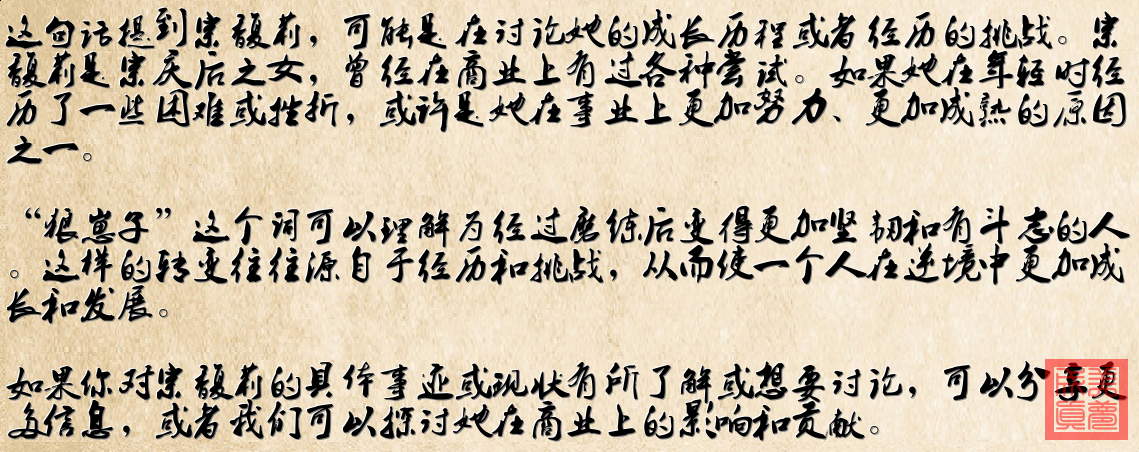 这句话提到宗馥莉，可能是在讨论她的成长历程或者经历的挑战。宗
馥莉是宗庆后之女，曾经在商业上有过各种尝试。如果她在年轻时经
历了一些困难或挫折，或许是她在事业上更加努力、更加成熟的原因
之一。
“狼崽子”这个词可以理解为经过磨练后变得更加坚韧和有斗志的人
。这样的转变往往源自于经历和挑战，从而使一个人在逆境中更加成
长和发展。
如果你对宗馥莉的具体事迹或现状有所了解或想要讨论，可以分享更
多信息，或者我们可以探讨她在商业上的影响和贡献。